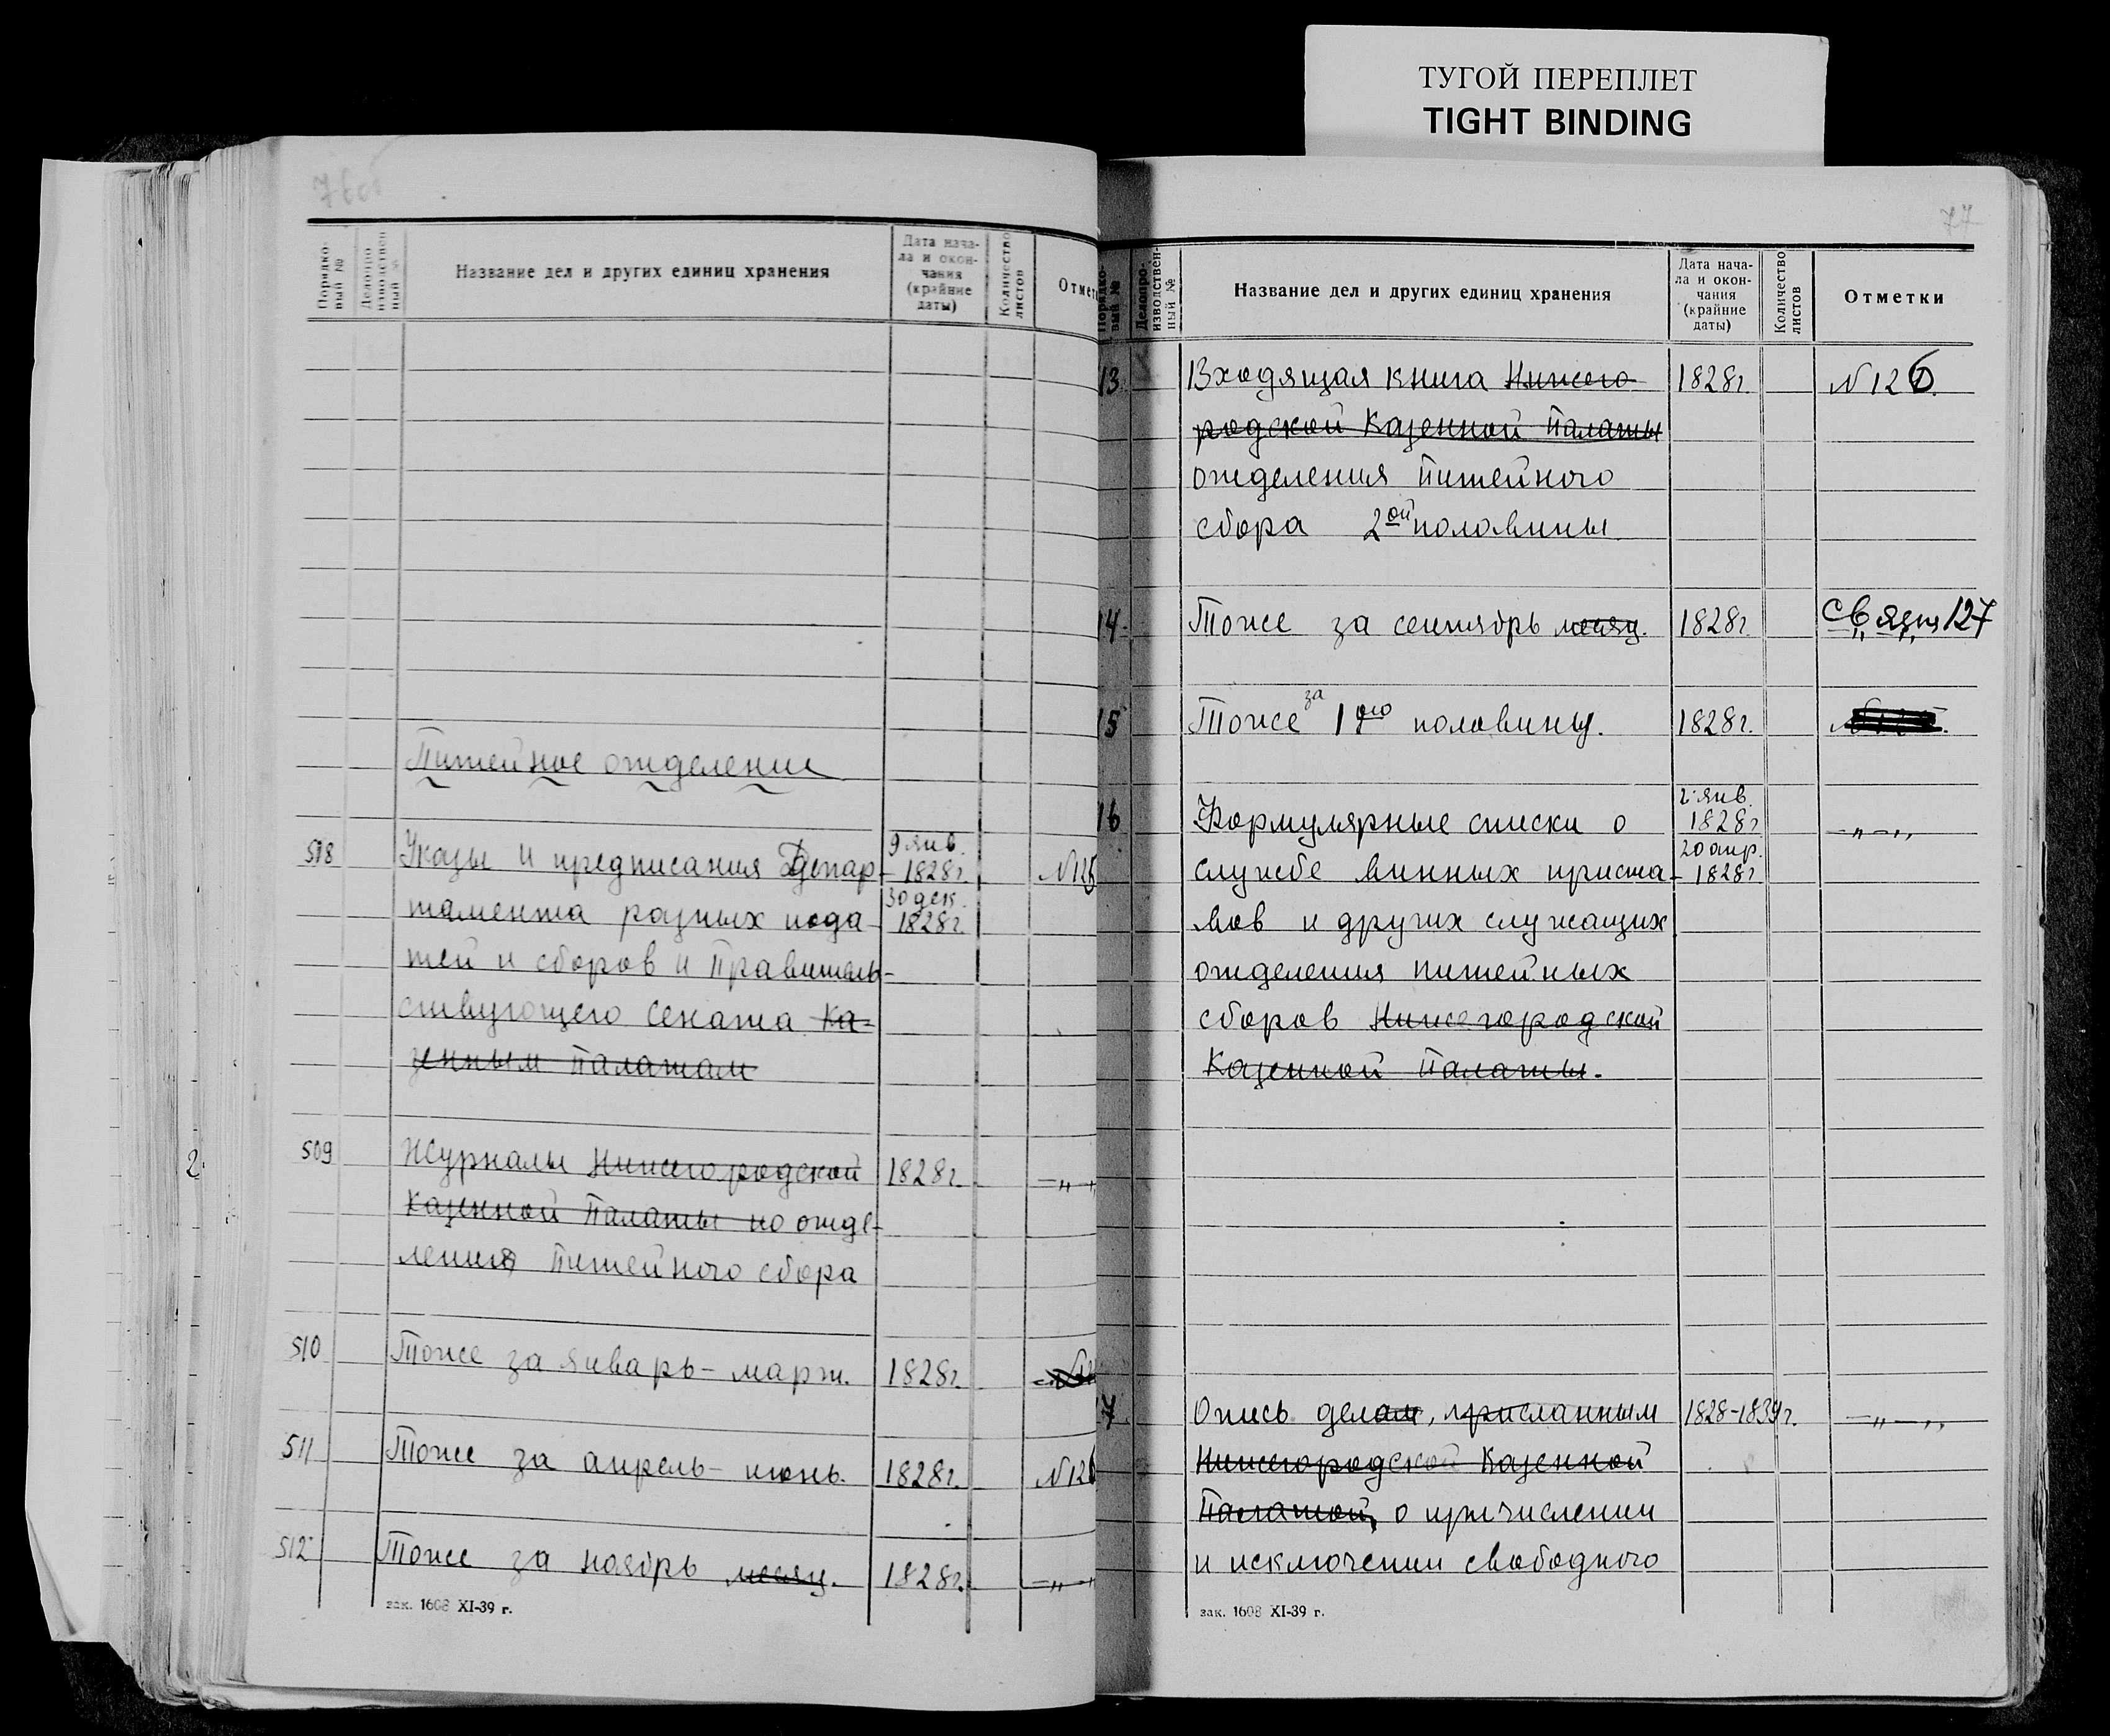 ТУГОЙ ПЕРЕПЛЕТ
TIGHT BINDING
76об
Порядко-
вый №
Делопро-
изводствен-
ный №
Название дел и других единиц хранения
Дата нача-
ла и окон-
чания
(крайние
даты)
Количество
листов
Отмет
Питейное отделение
508 Указы и предписания Депар- 9 янв. 1828г. №125
тамента разных пода- 30 дек. 1828г.
тей и сборов и Правитель-
ствующего Сената Ка-
зенным Палатам
509 Журналы Нижегородской 1828г. —„—„
Казенной Палаты по отде-
ления Питейного сбора
510 Тоже за январь – март. 1828г.
511 Тоже за апрель – июнь. 1828г. №126
512 Тоже за ноябрь месяц. 1828г. —„—„
зак. 1608 XI-39 г.
77
Порядко-
вый №
Делопро-
изводствен-
ный №
Название дел и других единиц хранения
Дата нача-
ла и окон-
чания
(крайние
даты)
Количество
листов
Отметки
13. Входящая книга Нижего- 1828г. №126.
родской Казенной Палаты
отделения Питейного
сбора 2ой половины.
14. Тоже за сентябрь месяц. 1828г. Связка 127
15 Тоже за 1ую половину. 1828г.
16 Формулярные списки о 2 янв. 1828г —„—„
службе винных приста- 20 апр. 1828г
вов и других служащих
отделения питейных
сборов Нижегородской
Казенной Палаты.
17. Опись делам, присланным 1828-1839г. —„—„
Нижегородской Казенной
Палатой, о причислении
и исключении свободного
зак. 1608 XI-39 г.